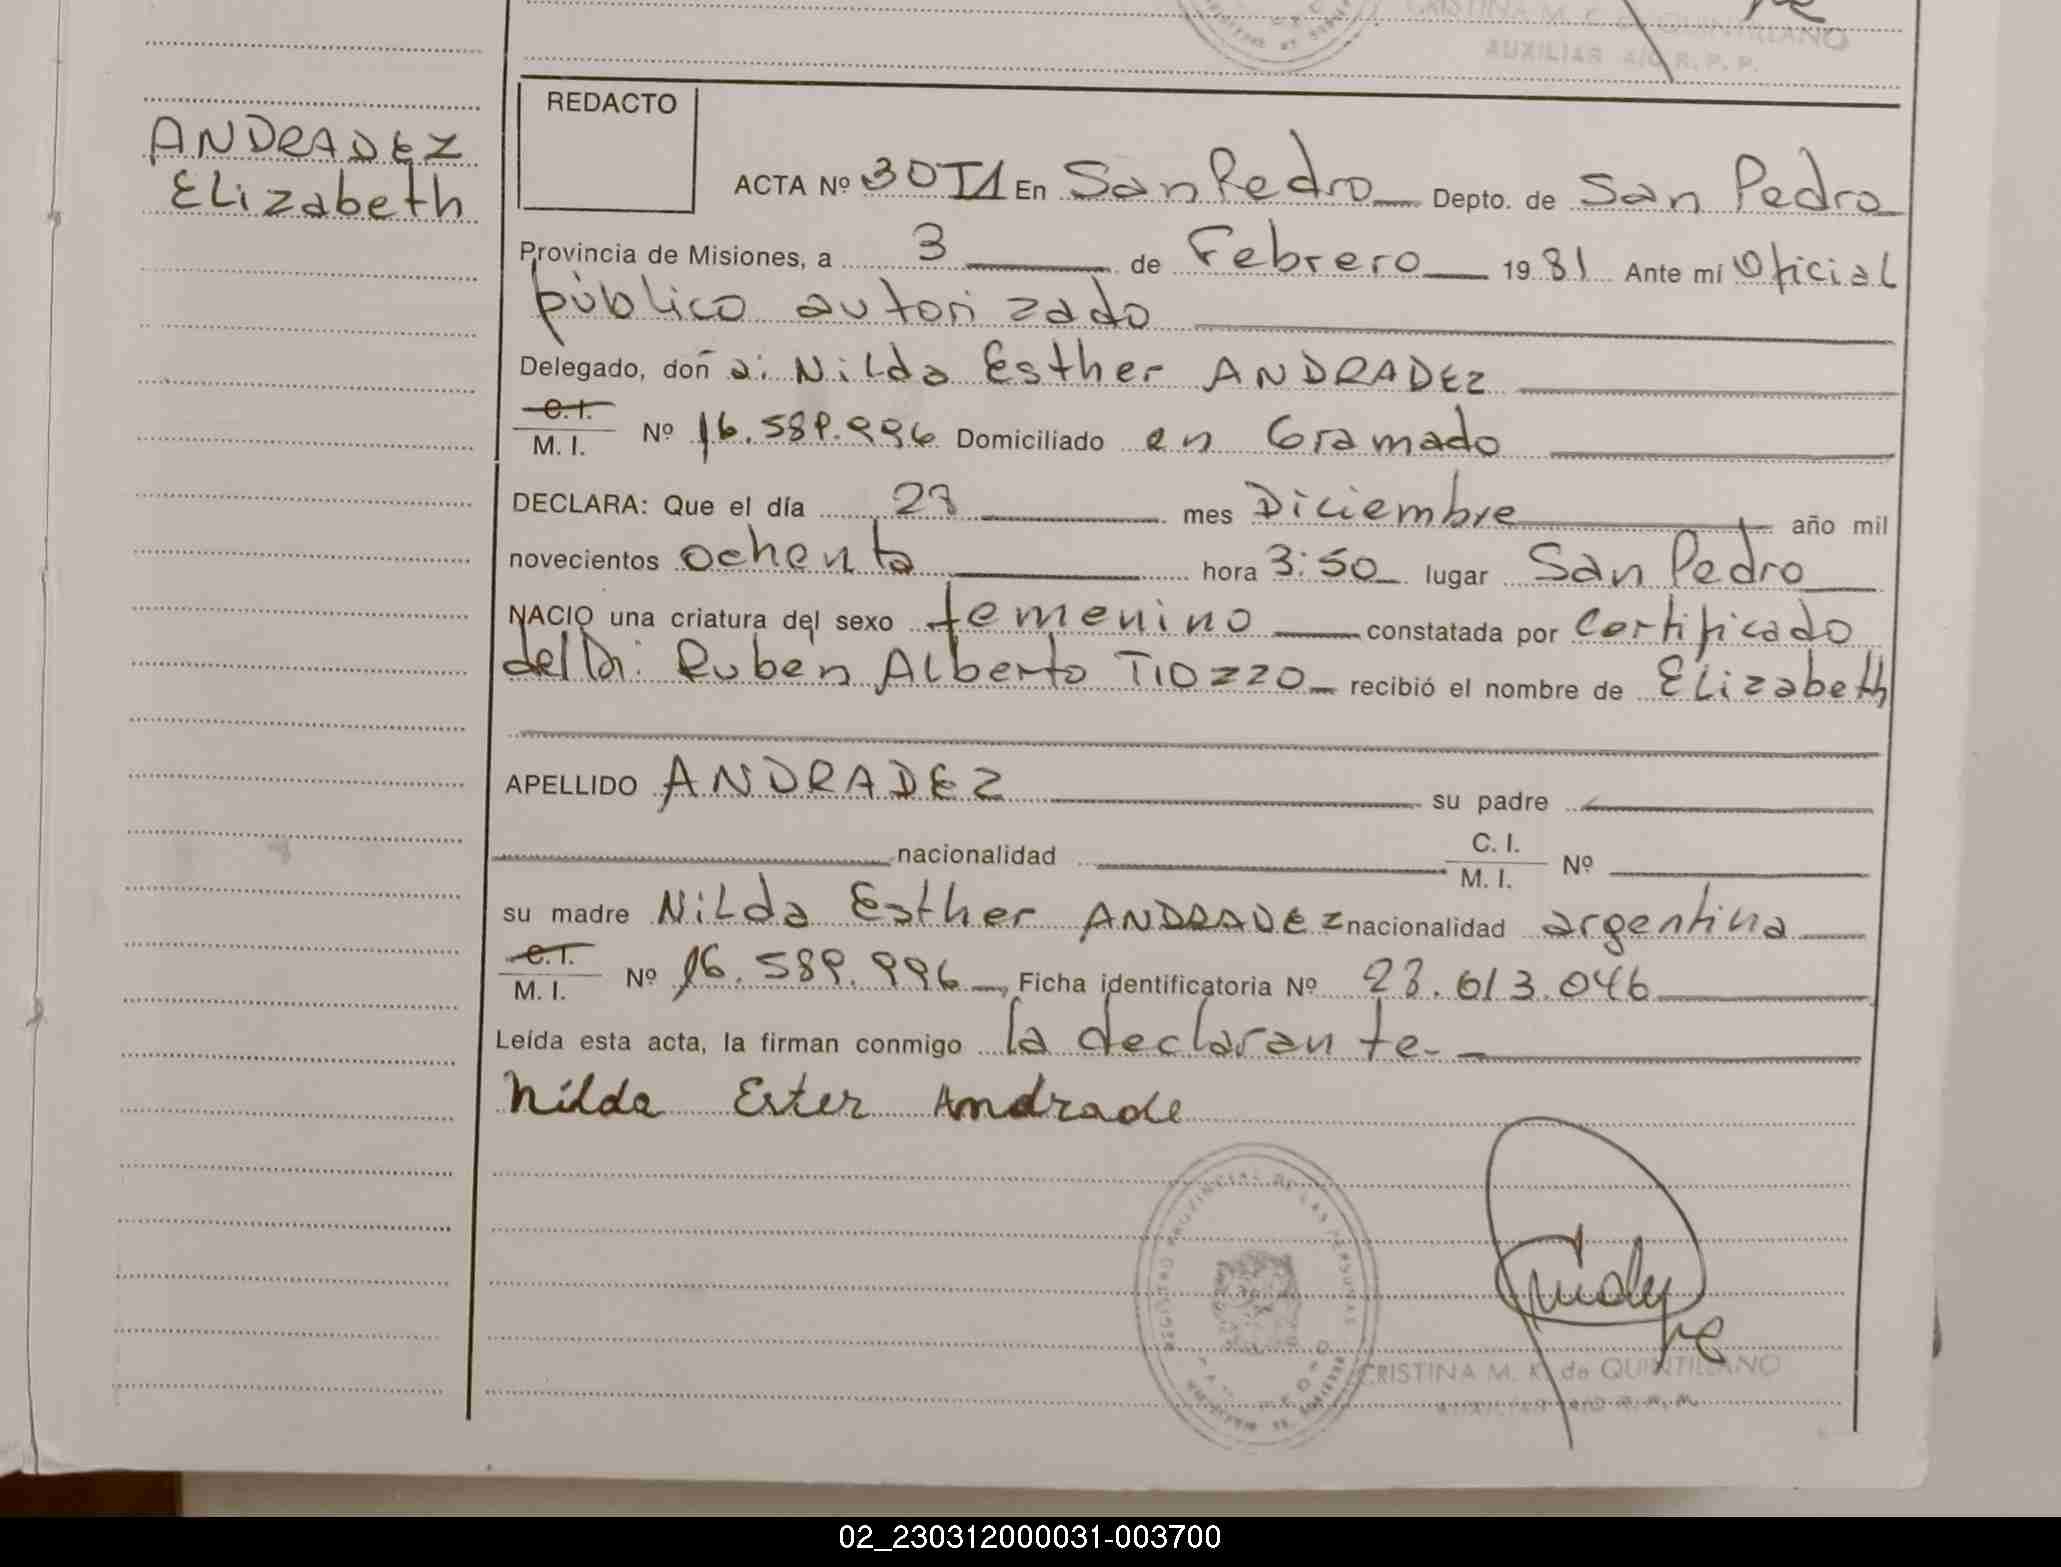 CRISTINA M. K. de QUINTILLANO
AUXILIAR A/C R. P. P.
REDACTO
ANDRADEZ
Elizabeth
ACTA Nº 30T1 En San Pedro Depto. de San Pedro
Provincia de Misiones, a 3 de Febrero 1981 Ante mí Oficial
público autorizado
Delegado, doña: Nilda Esther ANDRADEZ
C.I.
M. I. Nº 16.589.996 Domiciliado en Gramado
DECLARA: Que el día mes Diciembre año mil
novecientos ochenta hora 3:50 lugar San Pedro
NACIO una criatura del sexo femenino constatada por certificado
del Dr: Ruben Alberto TIOZZO recibió el nombre de Elizabeth
APELLIDO ANDRADEZ su padre
nacionalidad C. I.
M. I. Nº
su madre Nilda Esther ANDRADEZ nacionalidad argentina
C.I.
M. I. Nº 16.589.996, Ficha identificatoria Nº 28.613.046
Leída esta acta, la firman conmigo la declarante.
Nilda Ester Andrade
REGISTRO PROVINCIAL DE LAS PERSONAS
CRISTINA M. K. de QUINTILLANO
02_230312000031-003700